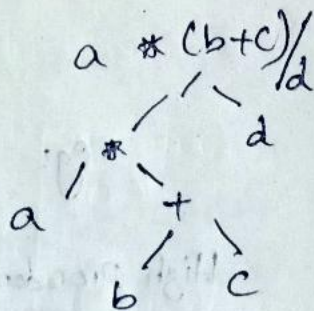 a * (b+c)/d
/
* d
a +
b c